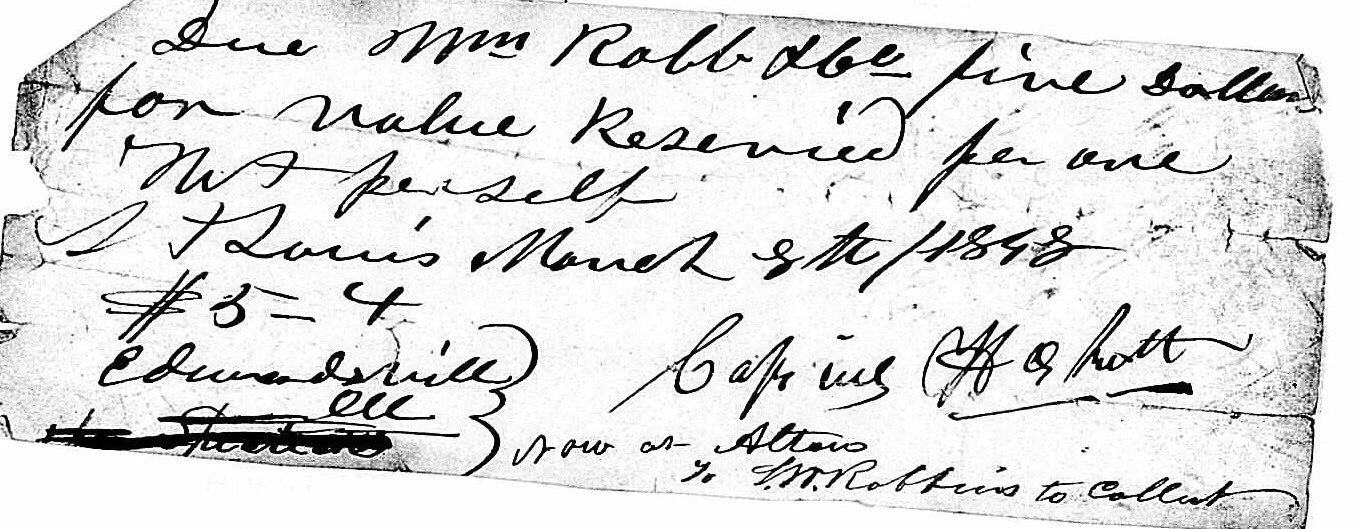 Due Wm Robb & Co five Dollars
for value Reseived per one
Not per self
St Louis March 8th / 1848
$5 –
Edwardsvill
Ill
now at Alton
To S.W. Robbins to Collect